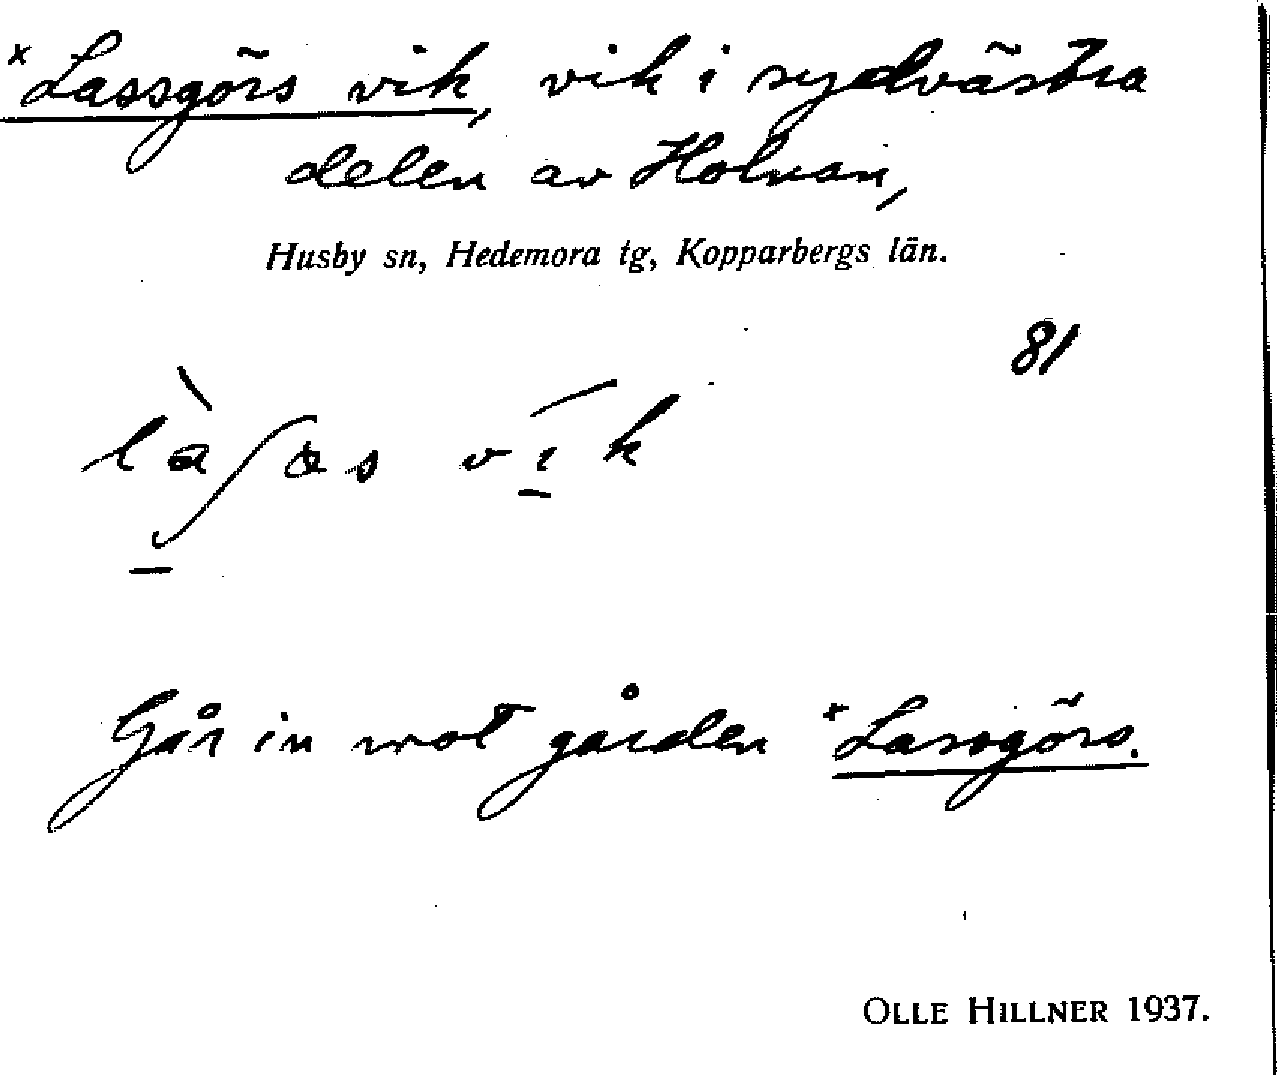 *Lassgörs vik, vik i sydvästra
delen av Holvan,
Husby sn, Hedemora tg, Kopparbergs län.
81
Går in mot gården *Lassgörs.
OLLE HILLNER 1937.